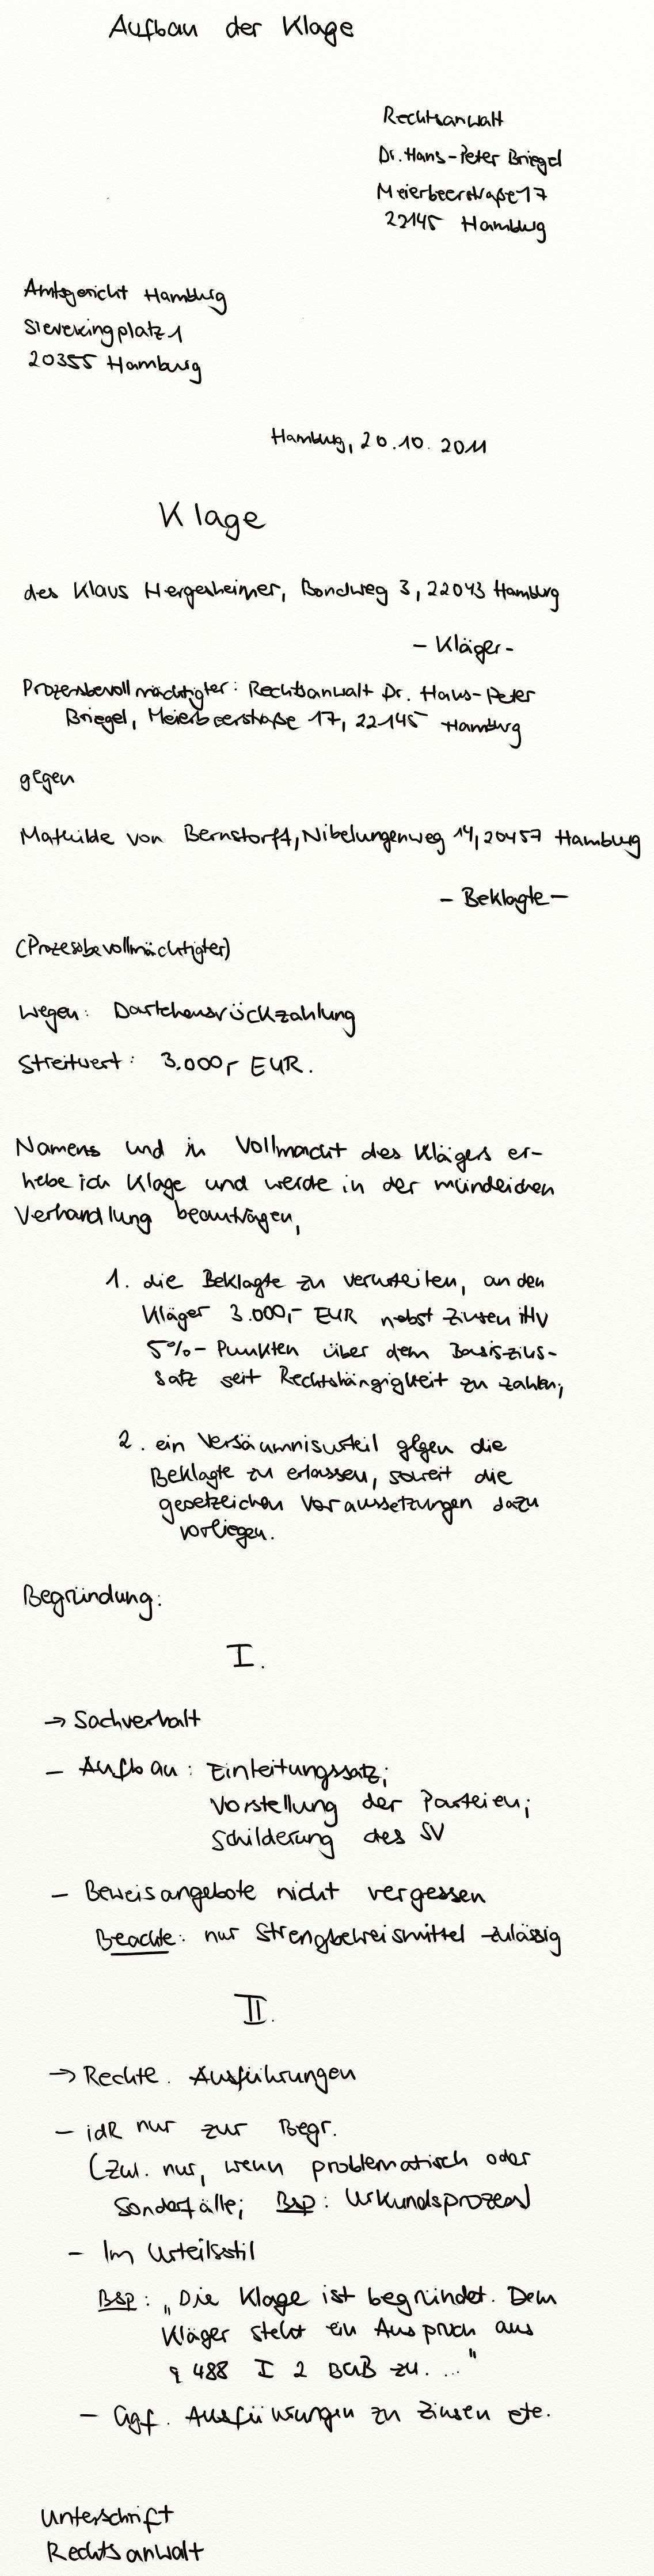 Aufbau der Klage
Rechtsanwalt
Dr. Hans-Peter Briegel
Meierbeerstraße 17
22145 Hamburg
Amtsgericht Hamburg
Sievekingplatz 1
20355 Hamburg
Hamburg, 20.10.2011
Klage
des Klaus Hergesheimer, Bondweg 3, 22043 Hamburg
- Kläger -
Prozessbevollmächtigter: Rechtsanwalt Dr. Hans-Peter
Briegel, Meierbeerstraße 17, 22145 Hamburg
gegen
Mathilde von Bernstorff, Nibelungenweg 14, 20457 Hamburg
- Beklagte -
(Prozessbevollmächtigter)
Wegen: Darlehensrückzahlung
Streitwert: 3.000,- EUR.
Namens und in Vollmacht des Klägers er-
hebe ich Klage und werde in der mündlichen
Verhandlung beantragen,
1. die Beklagte zu verurteilen, an den
Kläger 3.000,- EUR nebst Zinsen iHv
5%-Punkten über dem Basiszins-
satz seit Rechtshängigkeit zu zahlen;
2. ein Versäumnisurteil gegen die
Beklagte zu erlassen, soweit die
gesetzlichen Voraussetzungen dazu
vorliegen.
Begründung:
I.
→ Sachverhalt
- Aufbau: Einleitungssatz;
Vorstellung der Parteien;
Schilderung des SV
- Beweisangebote nicht vergessen
Beachte: nur Strengbeweismittel zulässig
II.
→ Rechtl. Ausführungen
- idR nur zur Begr.
(Zul. nur, wenn problematisch oder
Sonderfälle; Bsp: Urkundsprozess)
- Im Urteilsstil
Bsp: „Die Klage ist begründet. Dem
Kläger steht ein Anspruch aus
§ 488 I 2 BGB zu. ..."
- Ggf. Ausführungen zu Zinsen etc.
Unterschrift
Rechtsanwalt